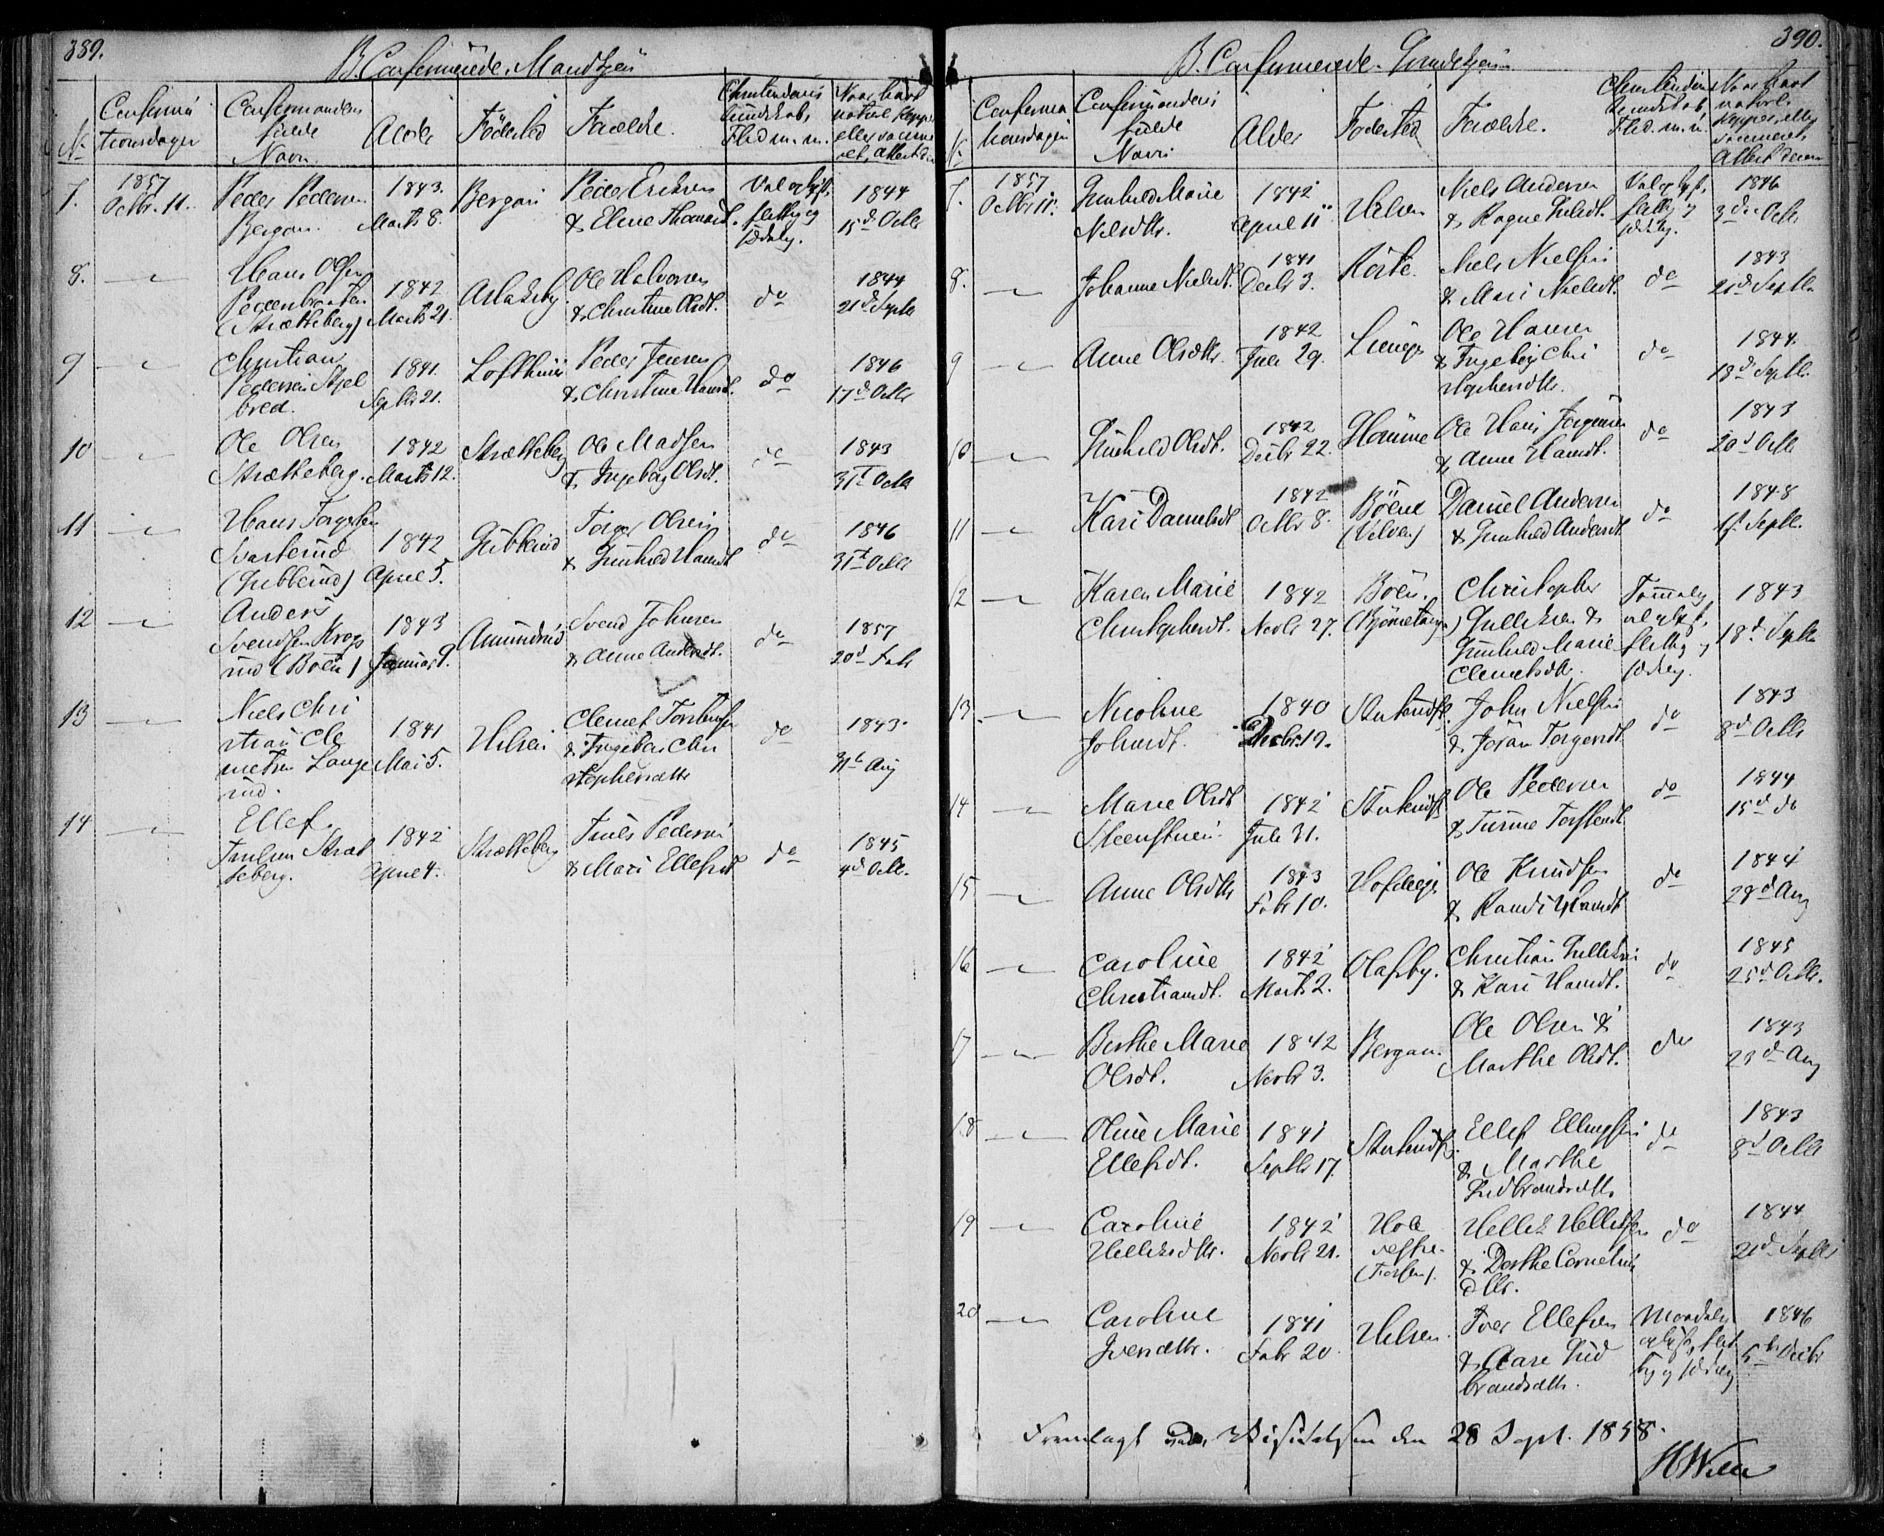 389.
B. Confirmerede. Mandkjøn
N.
Confirma
tionsdagen
Confirmandens
fulde
Navn
Alder
Fødested
Forældre.
Christendoms
kundskab,
Flid m. m.
Naar havt
naturl. Kopper
eller vaccine
ret, Attest
7.
1857
Octbr. 11.
Peder Pedersen
Bergan.
1843.
Marts 8.
Bergan
Peder Eriksen
& Elene Thomasd.
Vel oplyst,
flittig og
sædelig.
1844
15de Octb
8.
Hans Olsen
Pedersbraaten
(Strætteberg)
1842
Marts 21.
Aslakeby.
Ole Halvorsen
& Christine Olsdt.
do
1844
21de Septb
9
Christian
Pedersen Skjel
bred.
1841.
Septbr 21.
Lofthuus
Peder Jensen
& Christine Hansd.
do
1846
17de Octb
10
Ole Olsen
Strætteberg.
1842
Marts 12.
Strætteberg
Ole Madsen
& Ingeborg Olsdt.
do
1843
31te Octb
11
Hans Torgersen
Svarterud
(Gubberud)
1842
April 5.
Gubberud
Torger Olsen
& Gunhild Hansdt
do
1846
31te Octb
12
Anders
Svendsen Krogs
rud (Böen)
1843
Januar 9.
Amundrud
Svend Johnsen
& Anne Andersdt.
do
1857
20de Febr
13
Niels Chri
stian Cle
metsen Lange
rud.
1841
Mai 5.
Helsen
Clemet Torstensen
& Ingeborg Chri
stophersdatter
do
1843
31te Aug
14
Ellef
Truelsen Stræt
teberg.
1842
April 4.
Strætteberg
Truels Pedersen
& Mari Ellefsdt
do
1845
4de Octb.
390.
B. Confirmerede. Qvindekjøn
N.
Confirma
tionsdagen
Confirmandens
fulde
Navn
Alder
Fødested
Forældre.
Christendoms
kundskab,
Flid m. m.
Naar havt
naturl.
Kopper, eller
vaccineret,
Attest derom
7.
1857
Octbr 11.
Gunhild Marie
Nilsdtr.
1842
April 11
Helsen
Niels Andersen
& Ragne Gulsdt.
Vel oplyst,
flittig og
sædelig.
1846
3die Octb
8.
Johanne Nielsdt.
1841
Decbr 3.
Niels Nielsen
& Mari Nielsdt.
do
1843
21de Septb
9
Anne Olsdtr.
1842
Juli 29.
Ole Hansen
& Ingeborg Chri
stophersdtr.
do
1844.
18de Septb.
10
Gunhild Olsdt.
1842
Decbr 22.
Homme
Ole Hans Jørgensen
& Anne Hansdt.
do
1843
20de Octb
11
Kari Danielsdt
1842
Octbr 8.
Böene
Daniel Andersen
& Gunhild Andersdt
do
1848
1ste Septb.
12
Karen Marie
Christophersdt.
1842
Novbr 27.
Böen.
Christopher
Gulliksen &
Gunhild Marie
Clemetsdtr.
Temmelig
vel oplyst,
flittig og
sædelig.
1843
18de Septb
13.
Nicoline
Johnsdt.
1840
Decbr 19.
John Nielsen
& Joran Torgersdt
do
1843
8de Octb
14
Marie Olsdt
Steenstuen.
1842
Juli 31.
Ole Pedersen
& Turine Torstensdt
do
1844
15de do
15
Anne Olsdtr
1843
Febr 10.
Ole Knudsen
& Randi Hansdt.
do
1844
28de Aug
16
Caroline
Christiansdt.
1842
Marts 2.
Olafsby.
Christian Gulliksen
& Kari Hansdt.
do
1845
25de Octb.
17
Berthe Marie
Olsdt.
1842
Novbr 3.
Bergan.
Ole Olsen &
Marthe Olsdt.
do
1843
23de Aug
18
Oline Marie
Ellefsdt.
1841
Septbr 17.
Ellef Ellingsen
& Marthe
Gudbrandsdtr.
do
1843
8de Octb
19
Caroline
Helleksdtr.
1842
Novbr 21.
Hoe
vestre
Hellek Helleksen
& Dorthe Cornelius
dtr.
do
1844
21de Septb
20
Caroline
Iversdtr.
1841
Febr 20.
Helsen.
Iver Ellefsen
& Aase Gud
brandsdtr.
Maadelig
oplyst, flit
tig og sædelig
1846
5te Decbr
Fremlagt ved Visitatsen den 28 Sept. 1858.
HWille